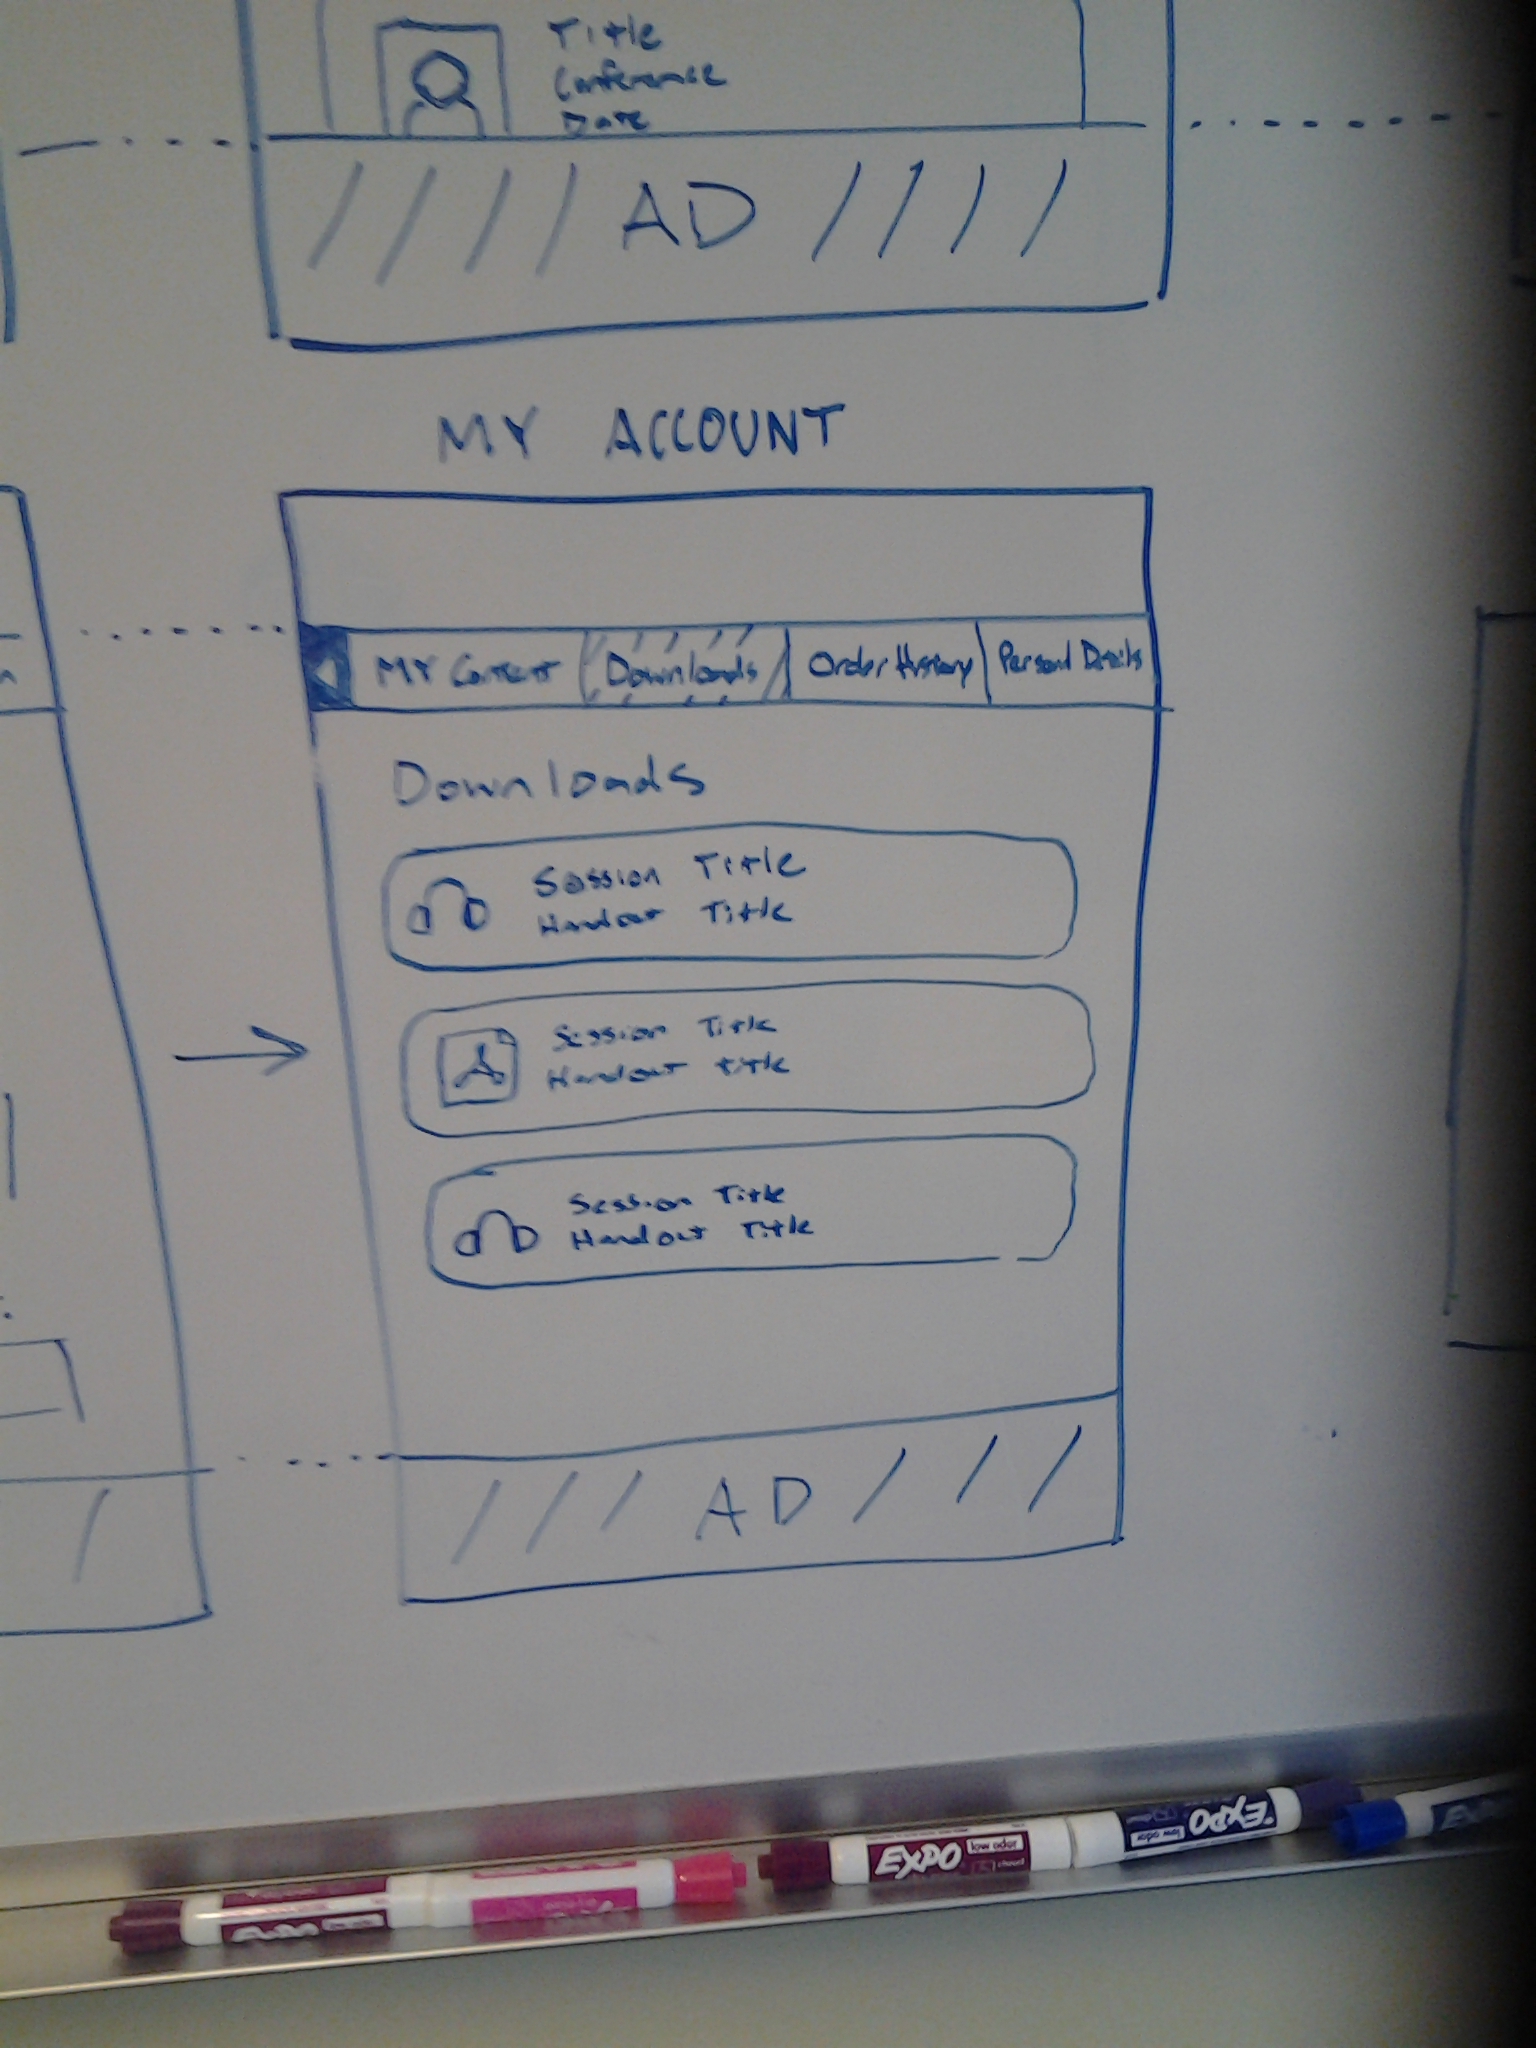 Title
Conference
Date
AD
MY ACCOUNT
MY Content
Downloads
Order History
Personal Details
Downloads
Session Title
Handout Title
Session Title
Handout title
Session Title
Handout Title
AD
EXPO
low odor
EXPO
low odor
EXPO